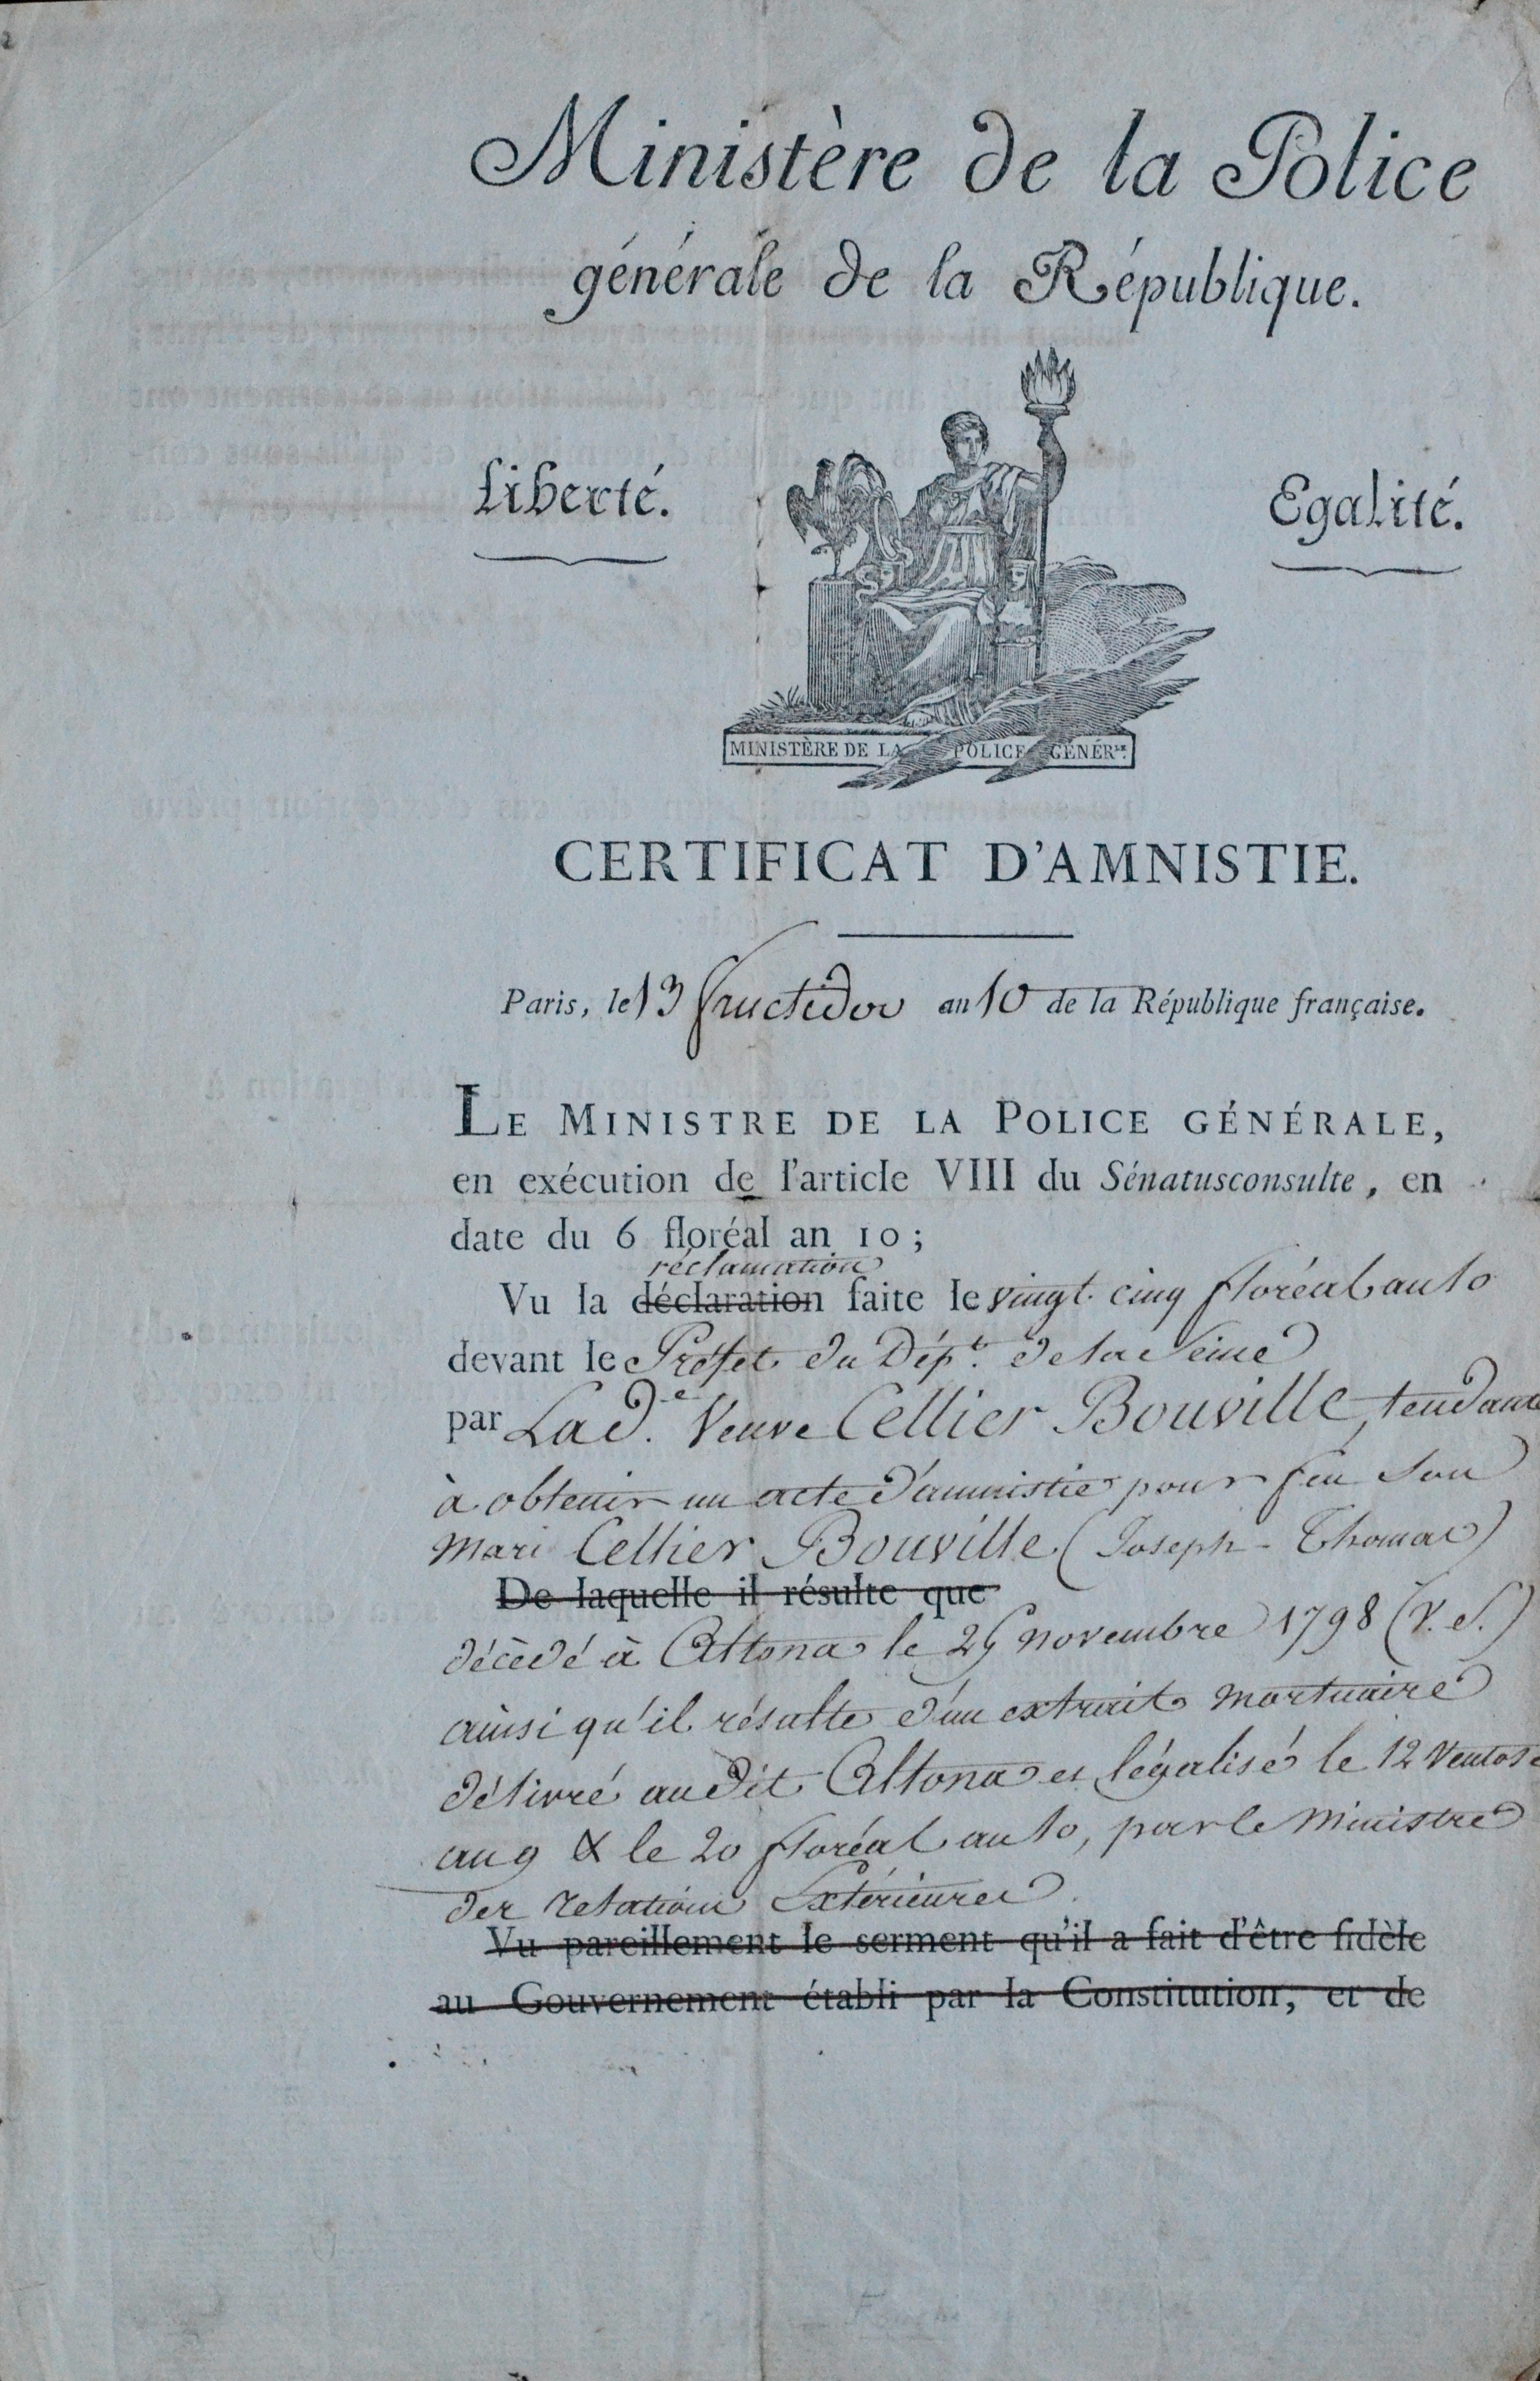 Ministère de la Police
générale de la République.
Liberté.
Egalité.
MINISTÈRE DE LA POLICE GÉNÉR.LE
CERTIFICAT D'AMNISTIE.
Paris, le 13 fructidor an 10 de la République française.
LE MINISTRE DE LA POLICE GÉNÉRALE,
en exécution de l'article VIII du Sénatusconsulte, en
date du 6 floréal an 10;
réclamation
Vu la déclaration faite le vingt cinq floréal an 10
devant le Préfet du Dépt. de la Seine
par La de. Veuve Cellier Bouville, tendante
à obtenir un acte d'amnistie pour feu Son
mari Cellier Bouville (Joseph-Thomas)
De laquelle il résulte que
décédé à Altona le novembre 1798 (V. S.)
ainsi qu'il résulte d'un extrait mortuaire
délivré audit Altona et légalisé le 12 Ventose
an 9 & le 20 floréal an 10, par le Ministre
des relations Extérieures.
Vu pareillement le serment qu'il a fait d'être fidèle
au Gouvernement établi par la Constitution, et de